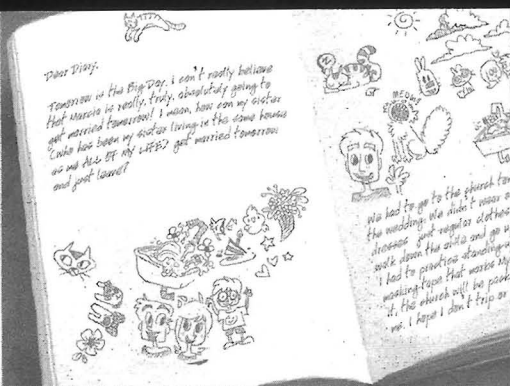 Dear Diary,
Tomorrow is the Big Day. I can't really believe
that Marcie is really, truly, absolutely going to
get married tomorrow! I mean, how can my sister
(who has been my sister living in the same house
as me ALL OF MY LIFE) get married tomorrow
and just leave?
MEOW!
We had to go to the church
the wedding. We didn't wear
dresses just regular clothes
walk down the aisle and go
I had to practice standing
masking tape that marks my
it, the church will be
me. I hope I don't trip or